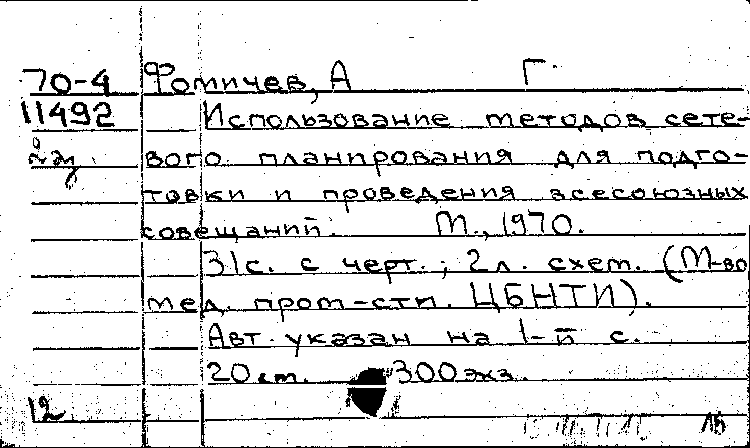 70-4 Фомичев, А Г.
11492 Использование методов сете-
вого планирования для подго-
товки и проведения всесоюзных
совещаний. М., 1970.
31с. с черт.; 2л. схем. (М-во
мед. пром-сти. ЦБНТИ).
Авт. указан на 1-й с.
20 см. 300 экз.
12